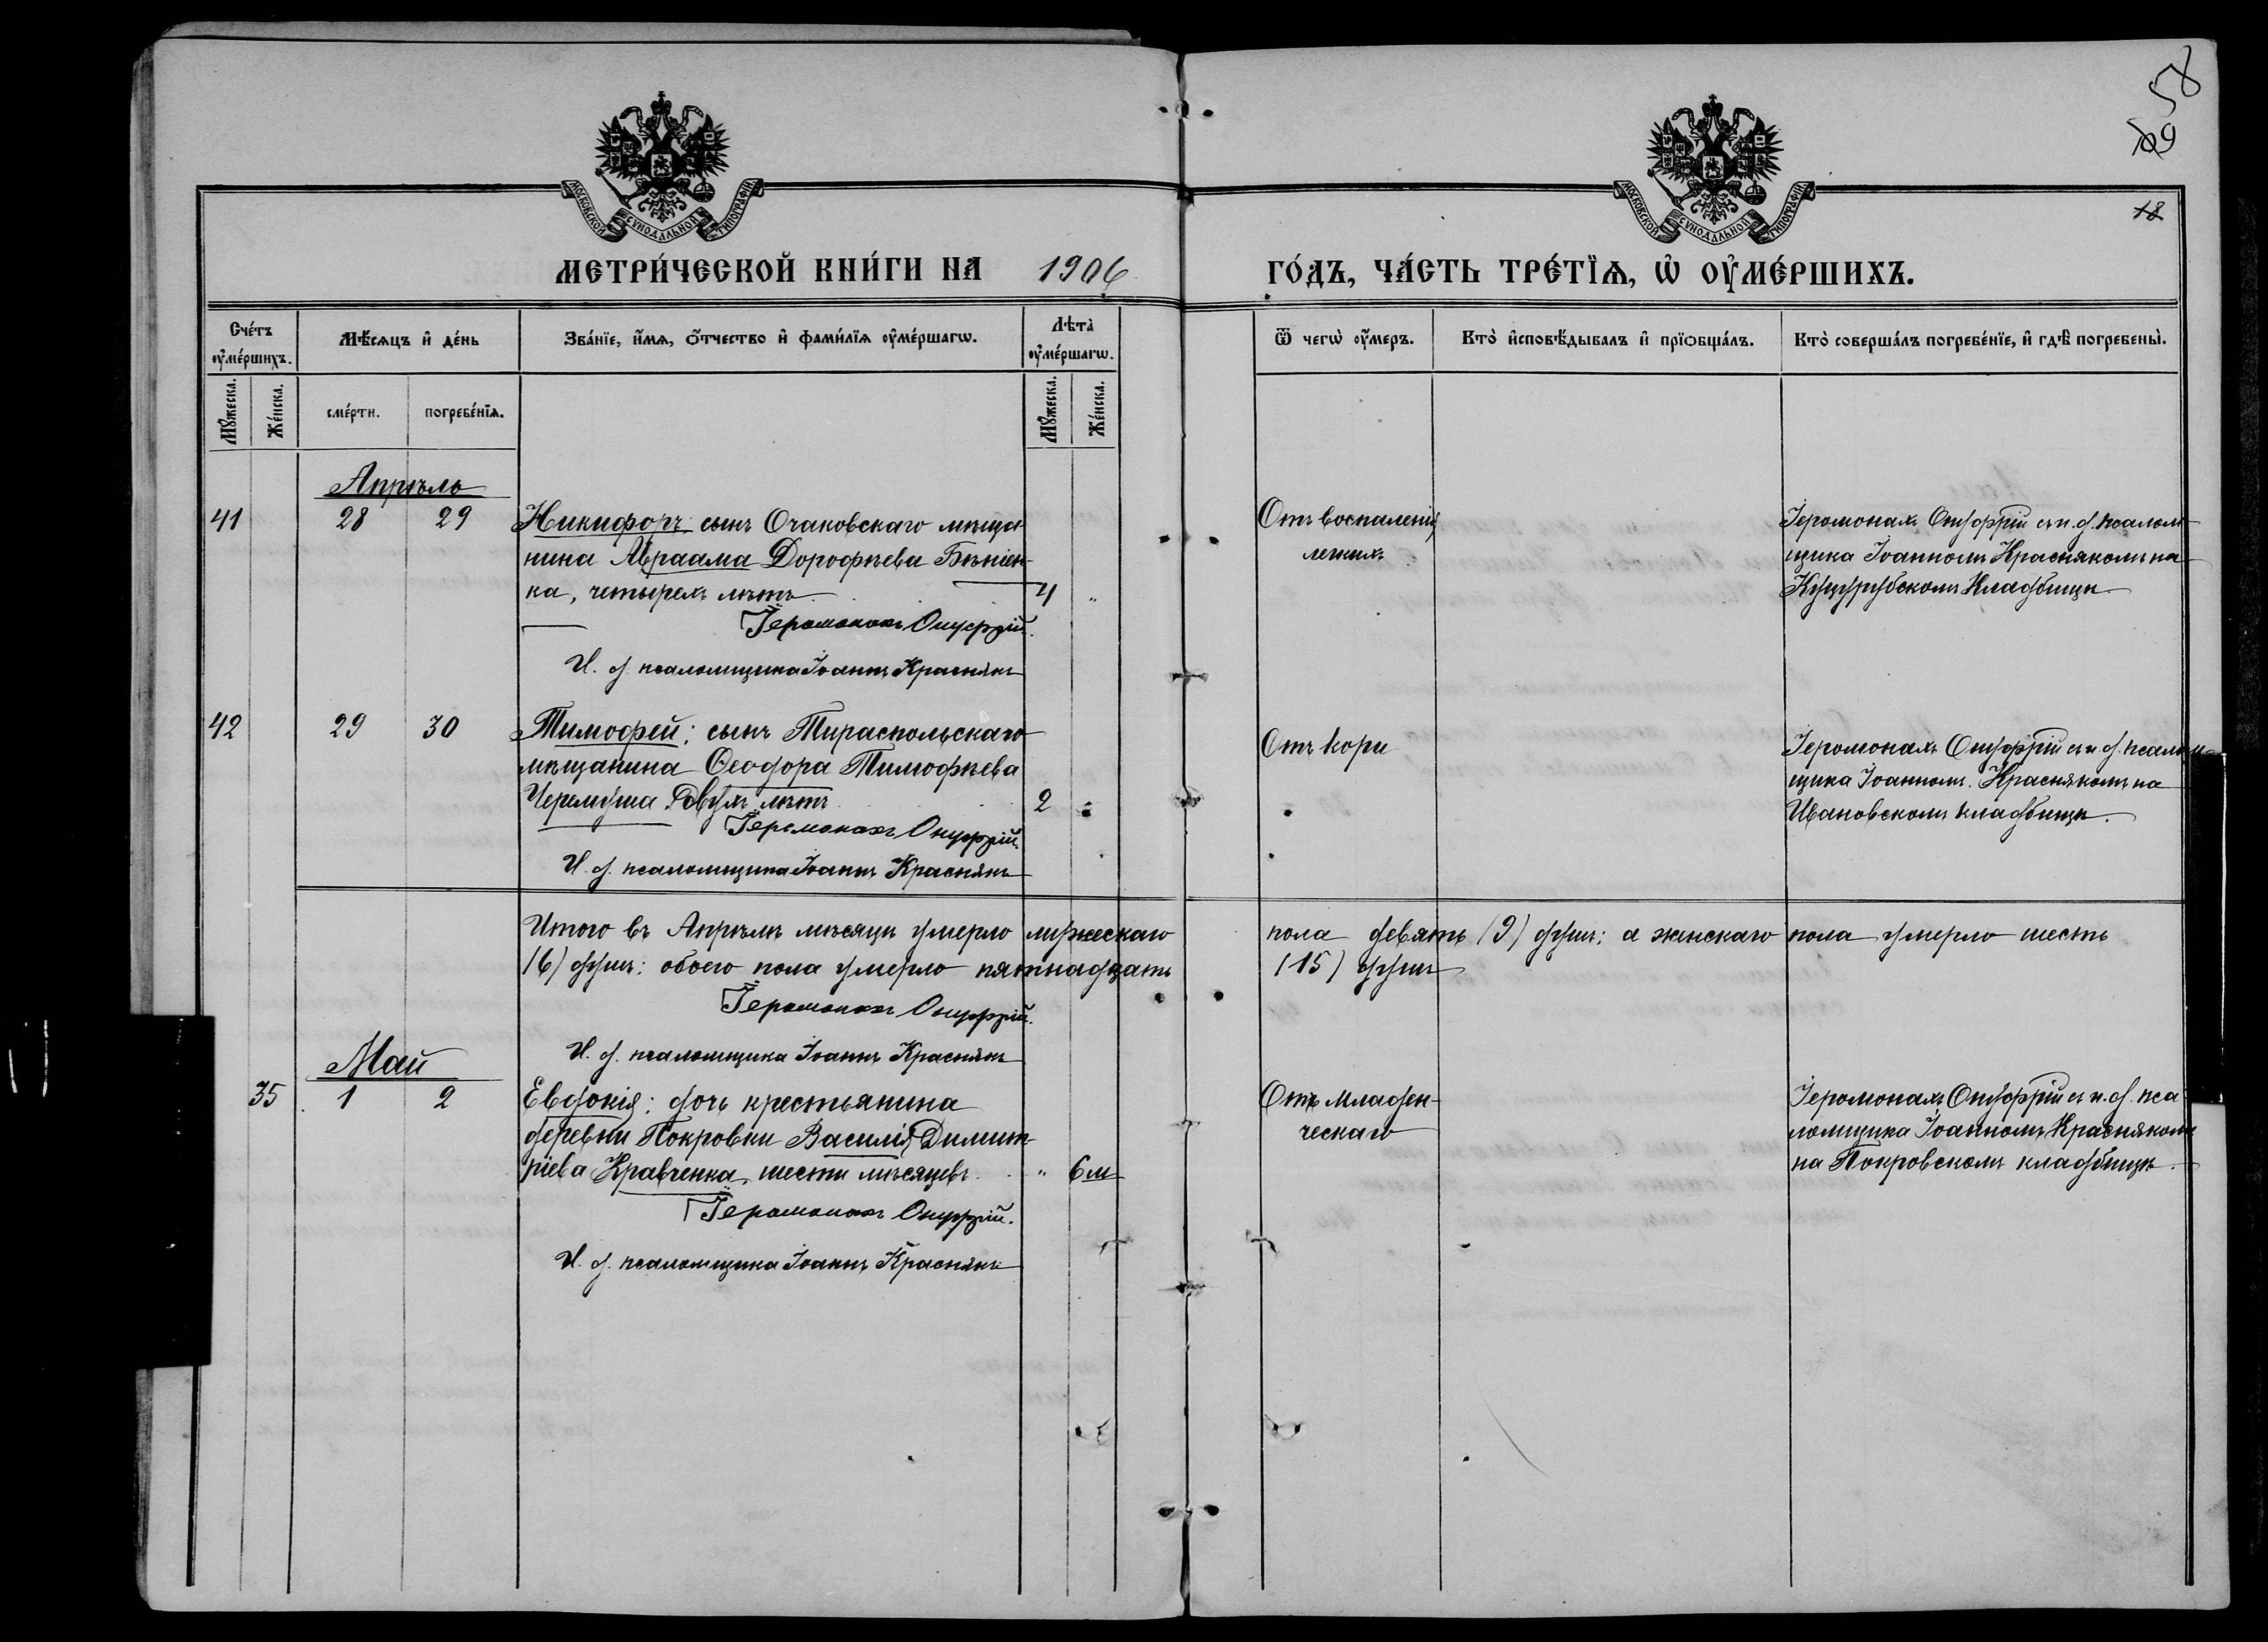 58
69
18
МОСКОВСКОЙ СѴНОДАЛЬНОЙ ТИПОГРАФІИ
МОСКОВСКОЙ СѴНОДАЛЬНОЙ ТИПОГРАФІИ
МЕТРИ́ЧЕСКОЙ КНИ́ГИ НА 1906 ГО́ДЪ, ЧА́СТЬ ТРЕ́ТЇѦ, Ѡ҆ ОУ҆МЕ́РШИХЪ.
Сче́тъ оу҆ме́ршихъ.
Мѣ́сѧцъ и҆ де́нь
Зва́нїе, и҆́мѧ, ѻ҆́тчество и҆ фами́лїѧ оу҆ме́ршагѡ.
Лѣ́та оу҆ме́ршагѡ.
Ѿ чегѡ̀ оу҆́меръ.
Кто̀ и҆сповѣ́дывалъ и҆ прїѡбща́лъ.
Кто̀ соверша́лъ погребе́нїе, и҆ гдѣ̀ погребены̀.
Мꙋ́жеска.
Же́нска.
сме́рти.
погребе́нїѧ.
Мꙋ́жеска.
Же́нска.
Апрѣль
41 28 29 Никифоръ сынъ Очаковскаго мѣща-
нина Авраама Дорофѣева
ка, четырехъ лѣтъ 4 "
Іеромонахъ Онуфрій.
И. д. псаломщика Іоаннъ Краснякъ
Отъ воспаленія
легкихъ
Іеромонахъ Онуфрій съ и. д. псалом-
щика Іоанномъ Краснякомъ на
Куцурубскомъ Кладбищѣ.
42 29 30 Тимофей; сынъ Тираспольскаго
мѣщанина Ѳеодора Тимофѣева
Черемуша двухъ лѣтъ 2 "
Іеромонахъ Онуфрій.
И. д. псаломщика Іоаннъ Краснякъ
Отъ кори
Іеромонахъ Онуфрій съ и. д. псалом-
щика Іоанномъ Краснякомъ на
Ивановскомъ кладбищѣ.
Итого въ Апрѣлѣ мѣсяцѣ умерло мужескаго пола девять (9) душъ; а женскаго пола умерло шесть
(6) душъ; обоего пола умерло пятнадцать (15) душъ
Іеромонахъ Онуфрій.
И. д. псаломщика Іоаннъ Краснякъ
Май
35 1 2 Евдокія; дочь крестьянина
деревни Покровки Василія Димит-
ріева Кравченка, шести мѣсяцевъ " 6 м
Іеромонахъ Онуфрій.
И. д. псаломщика Іоаннъ Краснякъ
Отъ младен-
ческаго
Іеромонахъ Онуфрій съ и. д. пса-
ломщика Іоанномъ Краснякомъ
на Покровскомъ кладбищѣ.